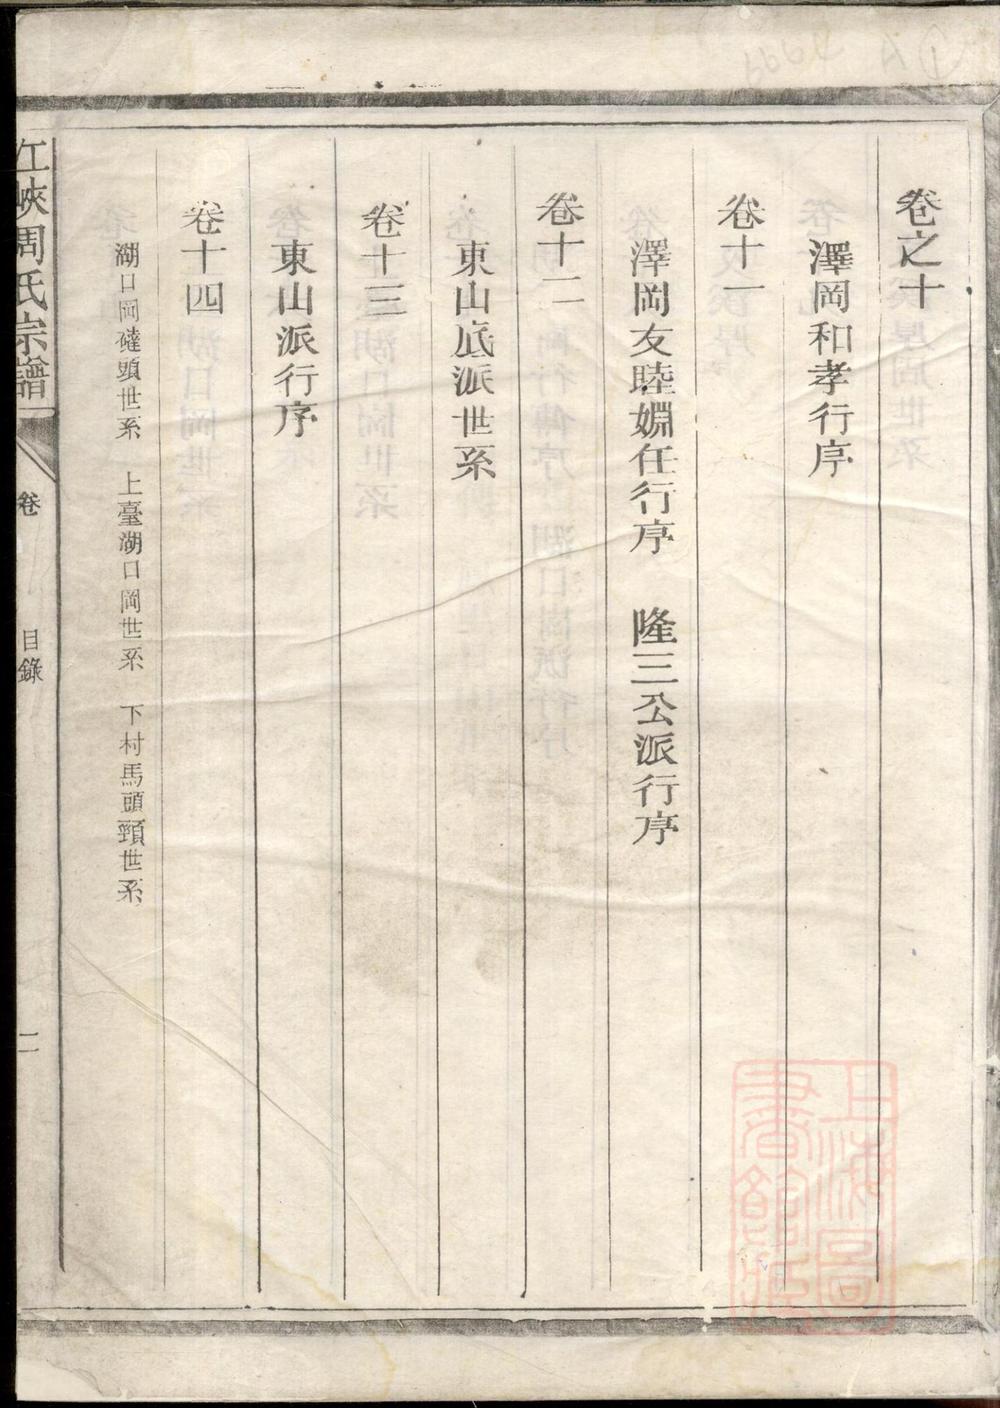 卷之十
澤岡和孝行序
卷十一
澤岡友睦婣任行序　隆三公派行序
卷十二
東山底派世系
卷十三
東山派行序
卷十四
湖口岡磋頭世系　上臺湖口岡世系　下村馬頭頸世系
江峽周氏宗譜
卷
目錄
二
上海圖書館藏